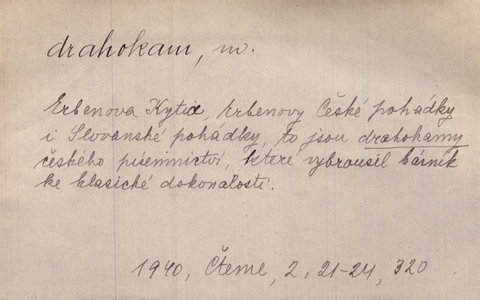 drahokam, m.
Erbenova Kytice, Erbenovy České pohádky
i Slovanské pohádky, to jsou drahokamy
českého písemnictví, které vybrousil básník
ke klasické dokonalosti.
1940, Čteme, 2, 21-24, 320